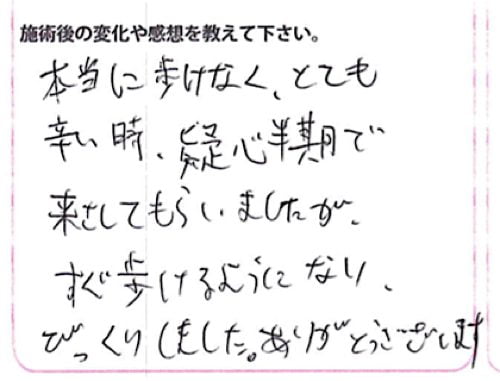 施術後の変化や感想を教えて下さい。
本当に歩けなく、とても
辛い時、疑心半期で
来さしてもらいましたが、
すぐ歩けるようになり、
びっくりしました。ありがとうございます